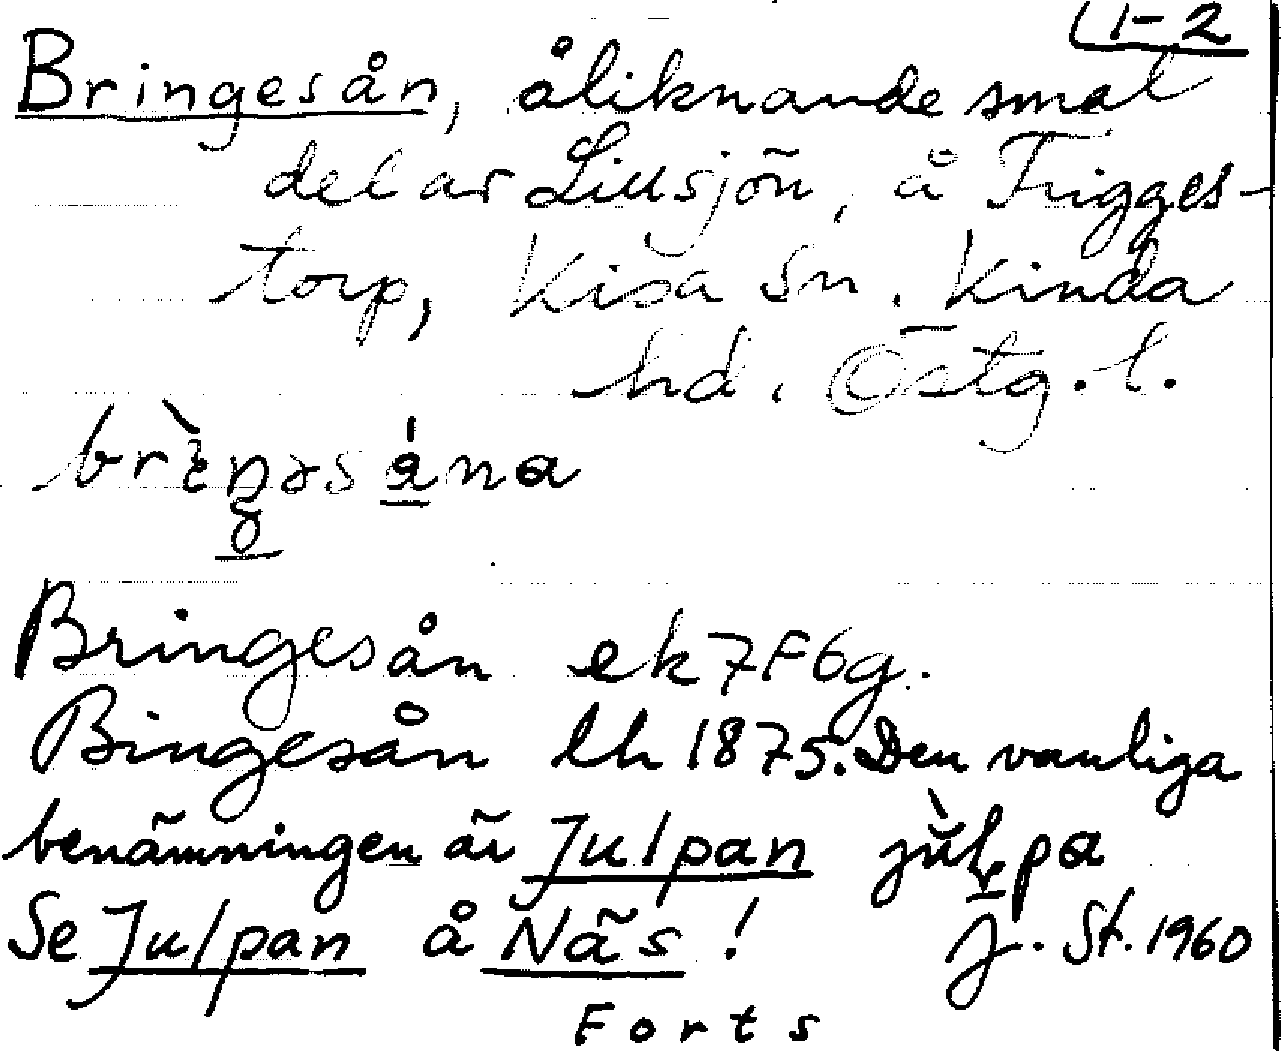 1-2
Bringesån, åliknande smal
del av Lillsjön, å Trigges-
torp, Kisa sn. Kinda
hd. Östg. l.
Bringesån ek 7F6g.
Bingesån lh 1875. Den vanliga
benämningen är Julpan
Se Julpan å Näs!
J. St. 1960
Forts